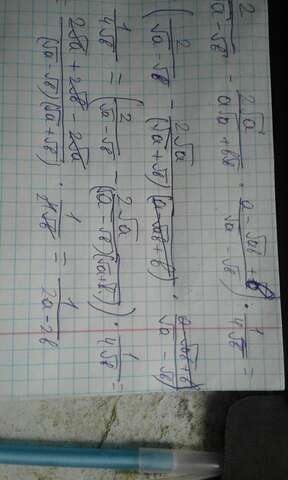 2/(√a-√b) - 2√a/(a√a+b√b) · (a-√ab+b)/(√a-√b) · 1/4√b =
(2/(√a-√b) - 2√a/((√a+√b)(a-√ab+b)) · (a-√ab+b)/(√a-√b)) ·
1/4√b = (2/(√a-√b) - 2√a/((√a-√b)(√a+√b))) · 1/4√b =
(2√a+2√b-2√a)/((√a-√b)(√a+√b)) · 1/4√b = 1/(2a-2b)